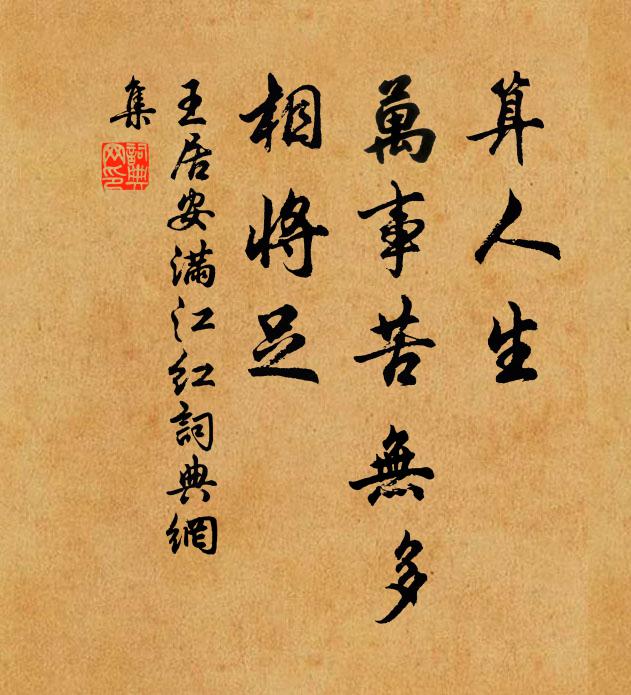 算人生
萬事苦無多
相將足
王居安滿江紅詞典網
集
詞典
网印